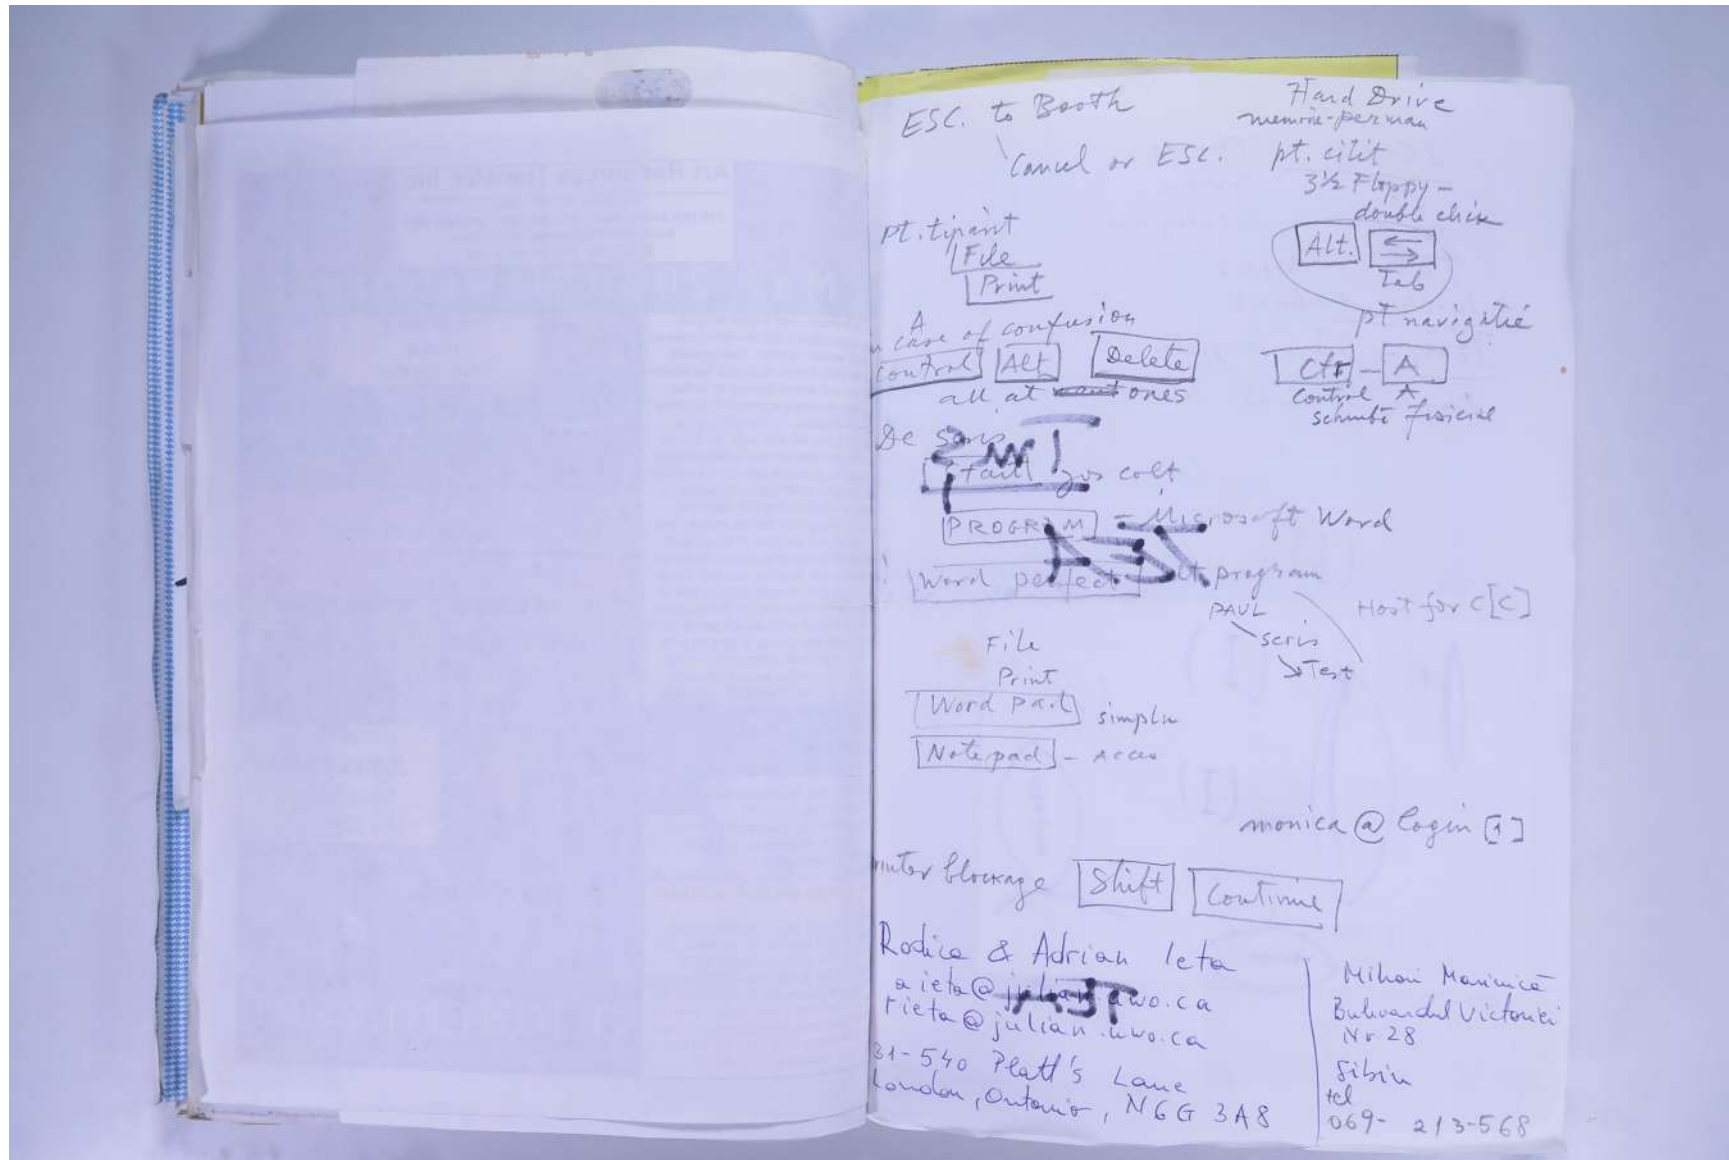 ESC. to Booth
Cancel or ESC.
Hard Drive
memorie-perman
pt. citit
3½ Floppy -
double click
Alt.
Tab
pt navigatie
pt. tiparit
File
Print
case of confusion
control Alt Delete
all at ones
Ctr - A
control A
De scris
Start jos colt
PROGRAM - Microsoft Word
Word perfect program
PAUL
scris
Test
Host for C[C]
File
Print
Word pad simplu
Notepad -
monica @ login [1]
blockage Shift Continue
Rodica & Adrian Ieta
aieta@julian.uwo.ca
rieta@julian.uwo.ca
31-540 Platt's Lane
London, Ontario, N6G 3A8
Mihai
Victoriei
Nr 28
Sibiu
tel
069- 213-568